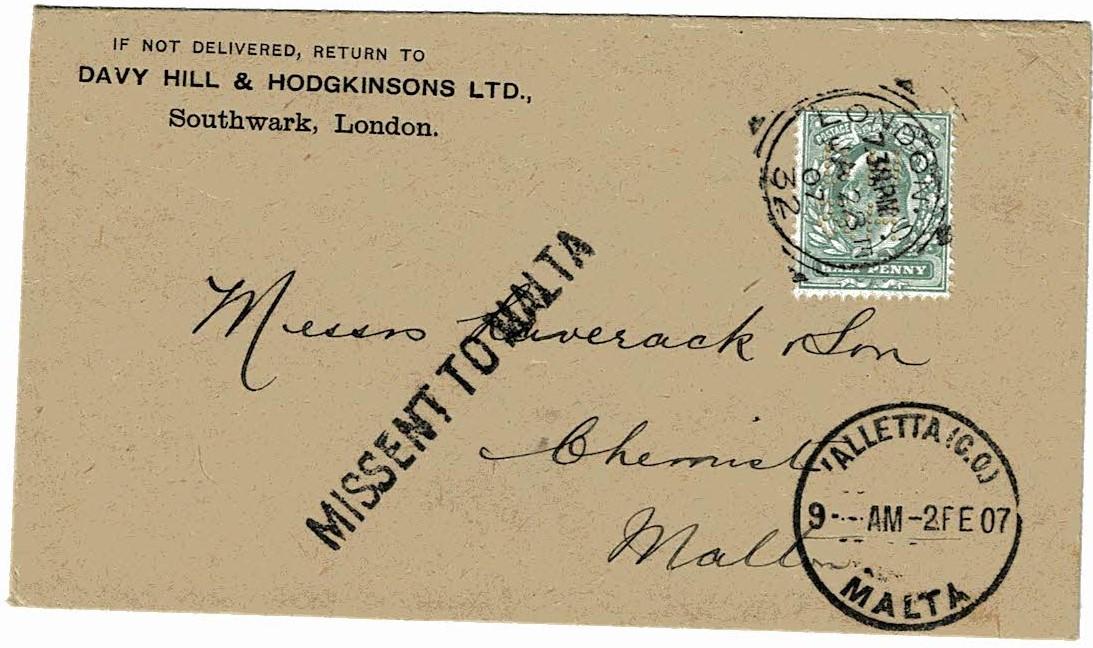 IF NOT DELIVERED, RETURN TO
DAVY HILL & HODGKINSONS LTD.,
Southwark, London.
LONDON.
7 30 PM
JA 28
07
32
POSTAGE
HALFPENNY
MISSENT TO MALTA
Messrs Taverack & Son
Chemist
Malton
VALLETTA (G.O.)
9 AM-2FE 07
MALTA